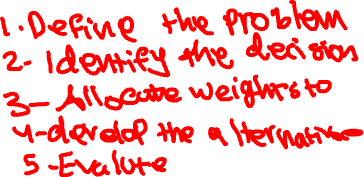 1. Define the problem
2- Identify the decision
3- Allocate weights to
4- develop the alternative
5 - Evalute